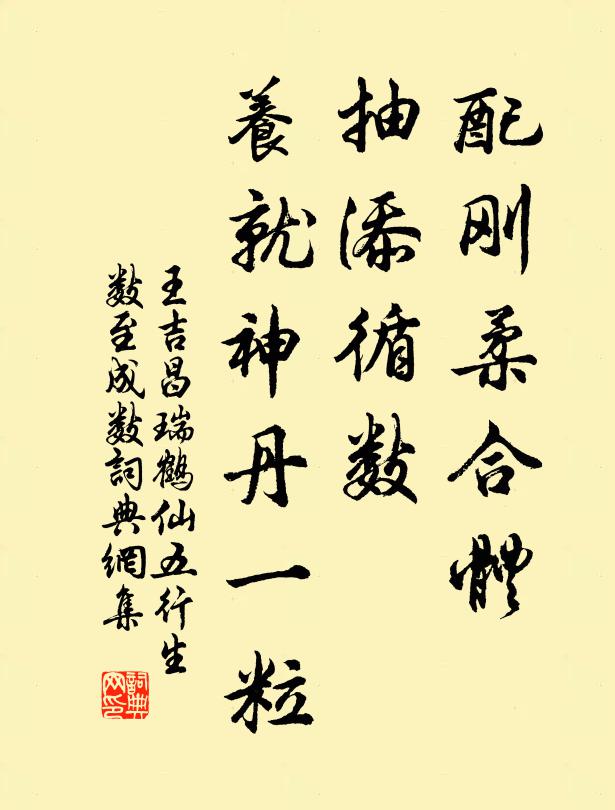 配刚柔合體
抽添循数
養就神丹一粒
王吉昌瑞鶴仙五行生
数至成数詞典網集
詞典网印